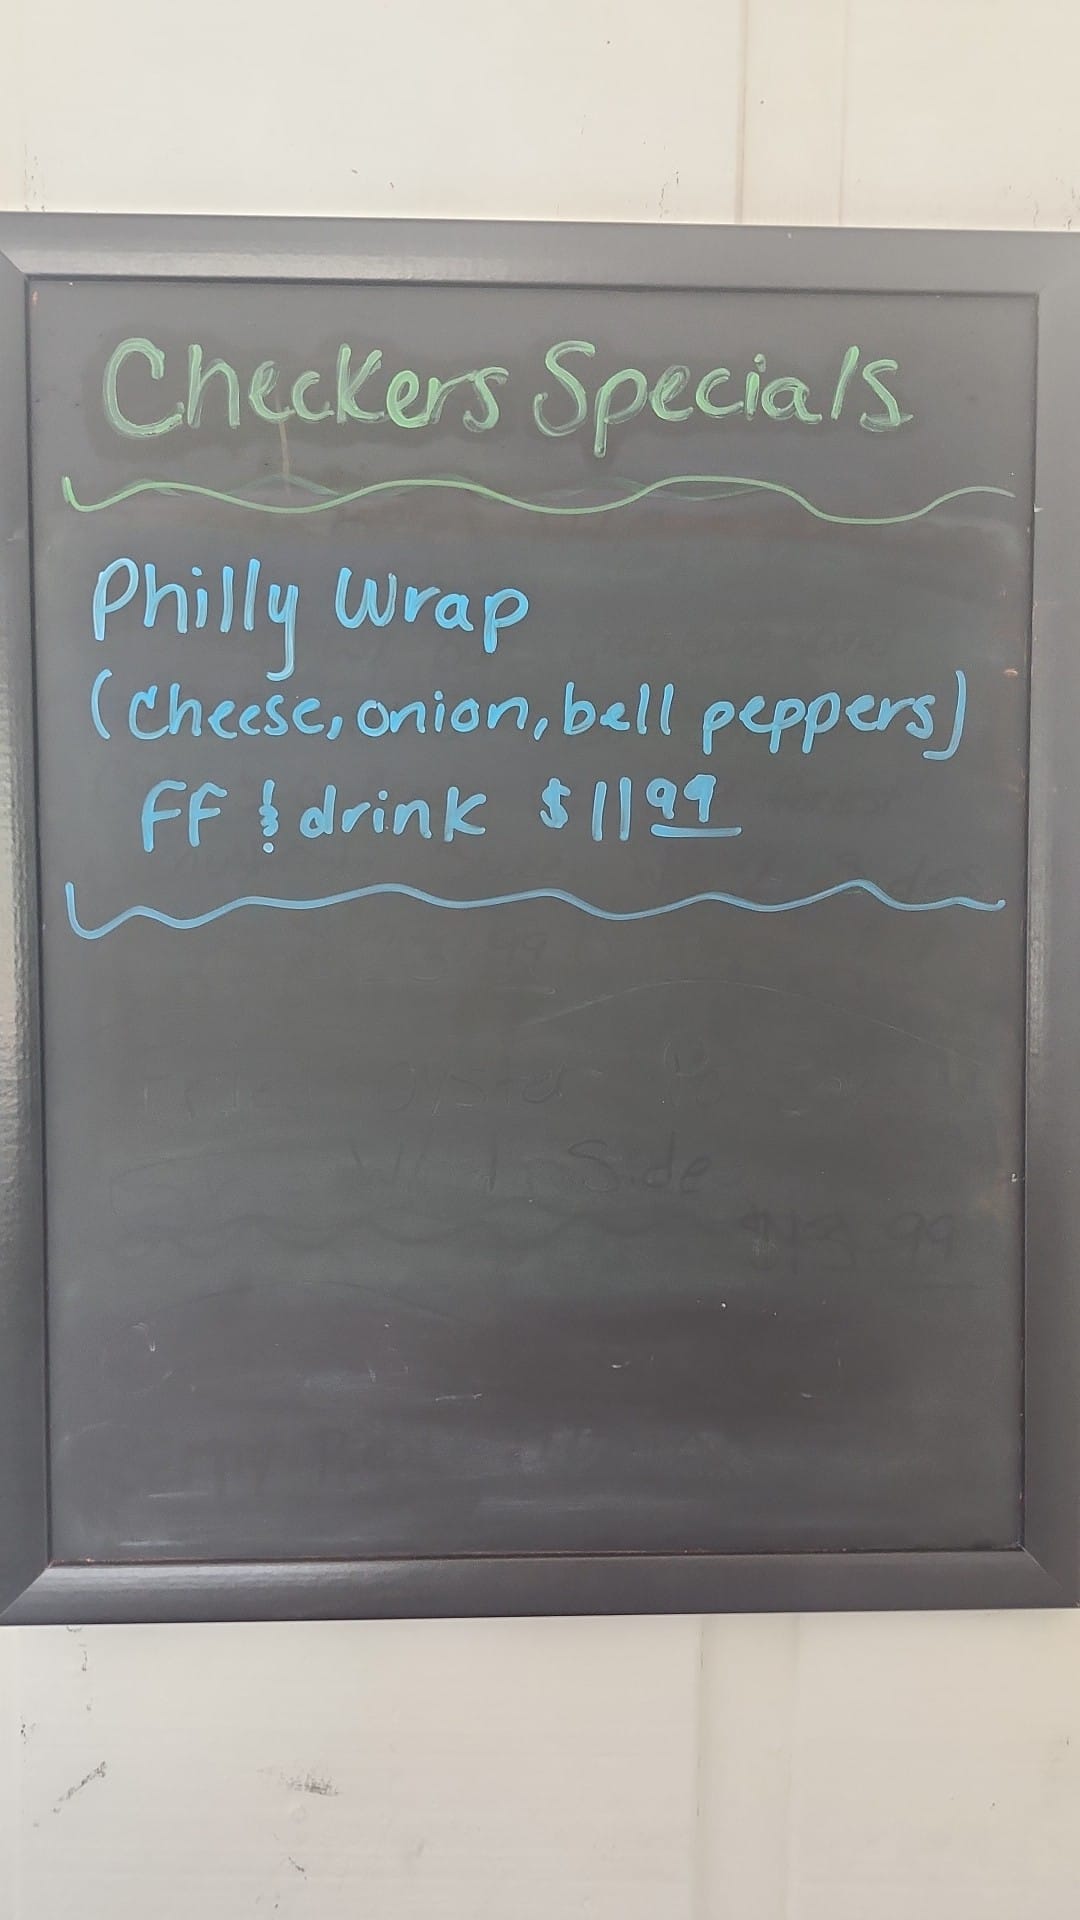 Checkers Specials
Philly Wrap
(Cheese, onion, bell peppers)
FF & drink $11 99
Side
99